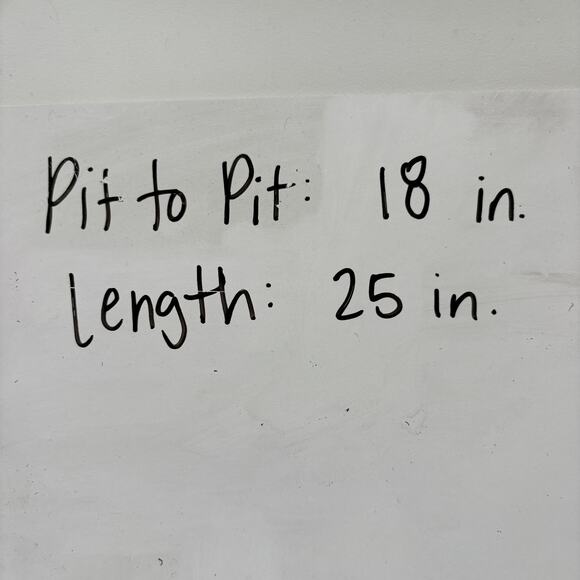 Pit to Pit: 18 in.
Length: 25 in.